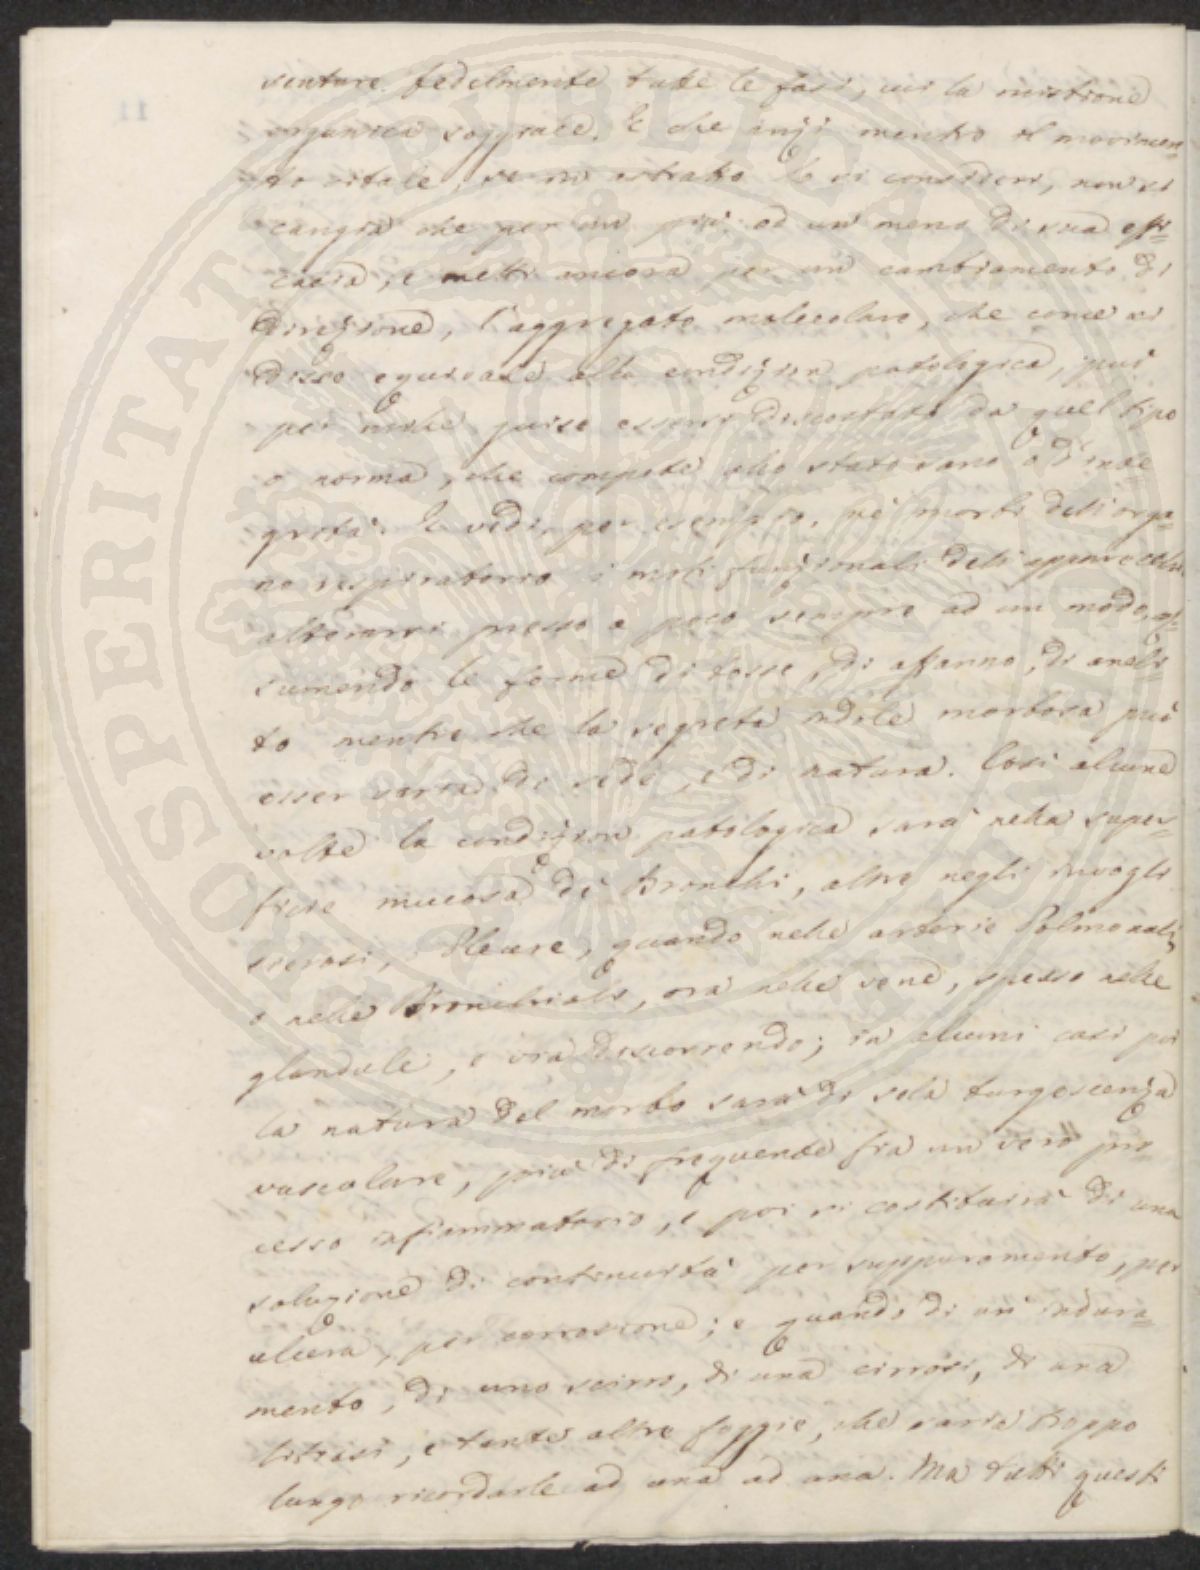 sentare fedelmente tutte le fasi, cui la mistione
organica soggiace. E che anzi mentre il movimen=
to vitale, se in astratto lo si consideri, non si
cangia che per un più, od un meno di sua effi=
cacia, e metti ancora per un cambiamento di
direzione, l'aggregato molecolare, che come si
disse equivale alla condizion patologica, può
per molte guise essersi discostato da quel tipo
o norma, che compete allo stato sano o d'inte
grità. E vedi, per esempio, ne' morbi dell'orga=
no respiratorio i moti funzionali dell'apparecchio
alterarsi presso a poco sempre ad un modo, as=
sumendo le forme di tosse, di affanno, di aneli
to mentre che la segreta indole morbosa può
esser varia di sede, e di natura. Così alcune
volte la condizion patologica sarà nella super=
ficie mucosa de' Bronchi, altre negli invogli
sierosi, Pleure, quando nelle arterie Polmonali,
o nelle Bronchiali, ora nelle vene, spesso nelle
glandule, e via discorrendo; in alcuni casi poi
la natura del morbo sarà di sola turgescenza
vascolare, più di frequente fia un vero pro=
cesso infiammatorio, e poi si costituirà di una
soluzione di continuità per suppuramento, per
ulcera, per corrosione; e quando di un indura=
mento, di uno scirro, di una cirrosi, di una
litiasi, e tante altre foggie, che saria troppo
lungo ricordarle ad una ad una. Ma tutti questi
PROSPERITATI PUBLICAE
11